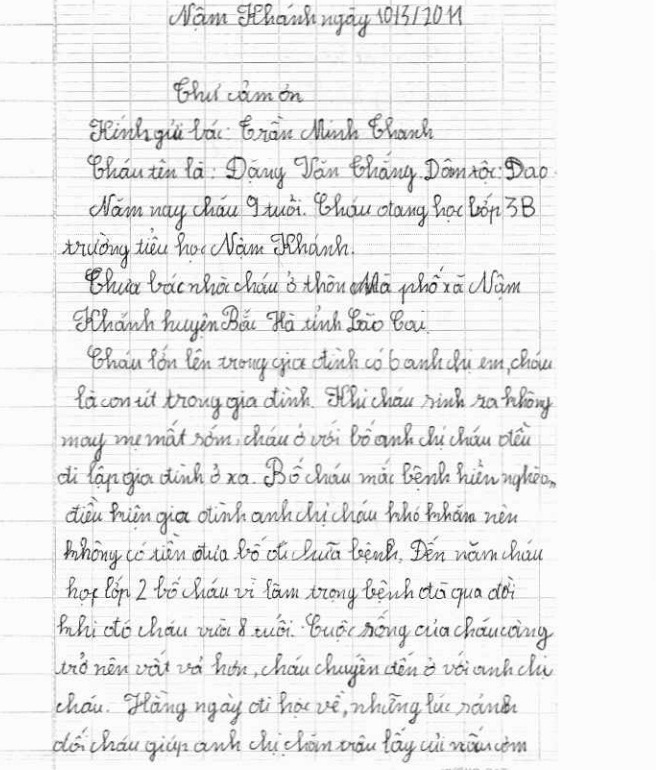 Nậm Khánh ngày 10/3/2011
Thư cảm ơn
Kính gửi bác: Trần Minh Thanh
Cháu tên là: Đặng Văn Thắng. Dâm tộc: Dao.
Năm nay cháu 9 tuổi. Cháu đang học lớp 3B
trường tiểu học Nậm Khánh.
Thưa bác nhà cháu ở thôn Mà phố xã Nậm
Khánh huyện Bắc Hà tỉnh Lào Cai.
Cháu lớn lên trong gia đình có 6 anh chị em, cháu
là con út trong gia đình. Khi cháu sinh ra không
may mẹ mất sớm, cháu ở với bố anh chị cháu đều
đi lập gia đình ở xa. Bố cháu mắc bệnh hiển nghèo,
điều kiện gia đình anh chị cháu khó khăn nên
không có tiền đưa bố đi chữa bệnh. Đến năm cháu
học lớp 2 bố cháu vì lâm trọng bệnh đã qua đời
khi đó cháu vừa 8 tuổi. Cuộc sống của cháu càng
trở nên vất vả hơn, cháu chuyển đến ở với anh chị
cháu. Hằng ngày đi học về, những lúc rảnh
dỗi cháu giúp anh chị chăn trâu lấy củi nấu cơm